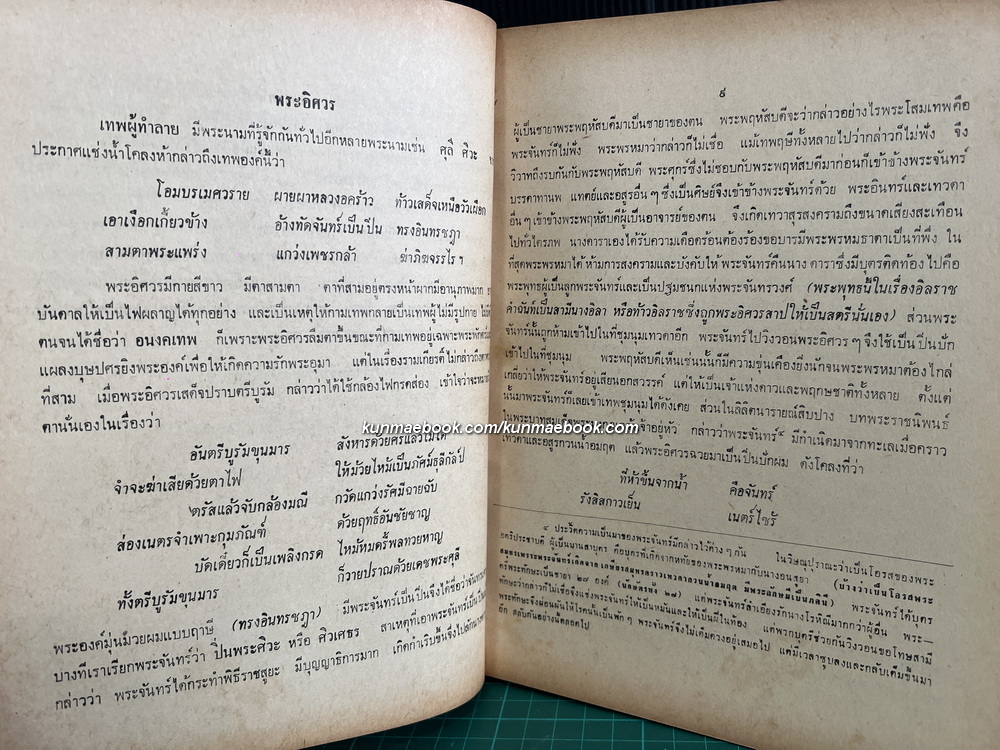 พระอิศวร
เทพผู้ทำลาย มีพระนามที่รู้จักกันทั่วไปอีกหลายพระนามเช่น ศุลี ศิวะ
ประกาศแช่งน้ำโคลงห้ากล่าวถึงเทพองค์นี้ว่า
โอมบรเมศวราย ผายผาหลวงอคร้าว ท้าวเสด็จเหนือวัวเผือก
เอาเงือกเกี้ยวข้าง อ้างทัดจันทร์เป็นปิ่น ทรงอินทรชฎา
สามตาพระแพร่ง แกว่งเพชรกล้า ฆ่าภิฆจรรไร ฯ
พระอิศวรมีกายสีขาว มีตาสามตา ตาที่สามอยู่ตรงหน้าผากมีอานุภาพมาก
บันดาลให้เป็นไฟผลาญได้ทุกอย่าง และเป็นเหตุให้กามเทพกลายเป็นเทพผู้ไม่มีรูปกาย
ตนจนได้ชื่อว่า อนงคเทพ ก็เพราะพระอิศวรลืมตาขึ้นขณะที่กามเทพอยู่เฉพาะพระพักตร์
แผลงบุษปศรยิงพระองค์เพื่อให้เกิดความรักพระอุมา แต่ในเรื่องรามเกียรติ์ ไม่กล่าวถึง
ที่สาม เมื่อพระอิศวรเสด็จปราบตรีบูรัม กล่าวว่าได้ใช้กล้องไฟกรดส่อง เข้าใจว่าจะ
ตานั่นเองในเรื่องว่า
อันตรีบูรัมขุนมาร สังหารด้วยศรแล้วไม่ได้
จำจะฆ่าเสียด้วยตาไฟ ให้ม้วยไหม้เป็นภัศม์ธุลีกัลป์
ตรัสแล้วจับกล้องมณี กวัดแกว่งรัศมีฉายฉับ
ส่องเนตรจำเพาะกุมภัณฑ์ ด้วยฤทธิ์อันชัยชาญ
บัดเดี๋ยวก็เป็นเพลิงกรด ไหม้หมดรี้พลทวยหาญ
ทั้งตรีบูรัมขุนมาร ก็วายปราณด้วยเดชพระศุลี
พระองค์มุ่นม้วยผมแบบฤาษี (ทรงอินทรชฎา) มีพระจันทร์เป็นปิ่นจึงได้ชื่อว่า
บางทีเราเรียกพระจันทร์ว่า ปิ่นพระศิวะ หรือ ศิวเศธร สาเหตุที่เอาพระจันทร์เป็นปิ่น
กล่าวว่า พระจันทร์ได้กระทำพิธีราชสูยะ มีบุญญาธิการมาก เกิดกำเริบขึ้นจึงไปลักนาง
๙
ผู้เป็นชายาพระพฤหัสบดีมาเป็นชายาของตน พระพฤหัสบดีจะว่ากล่าวอย่างไรพระโสมเทพคือ
พระจันทร์ก็ไม่ฟัง พระพรหมาว่ากล่าวก็ไม่เชื่อ แม้เทพฤษีทั้งหลายไปว่ากล่าวก็ไม่ฟัง จึง
วิวาทถึงรบกันกับพระพฤหัสบดี พระศุกร์ซึ่งไม่ชอบกับพระพฤหัสบดีมาก่อนก็เข้าข้างพระจันทร์
บรรดาทานพ แทตย์และอสูรอื่น ๆ ซึ่งเป็นศิษย์จึงเข้าข้างพระจันทร์ด้วย พระอินทร์และเทวดา
อื่น ๆ เข้าข้างพระพฤหัสบดีผู้เป็นอาจารย์ของตน จึงเกิดเทวาสุรสงครามถึงขนาดเสียงสะเทือน
ไปทั่วไตรภพ นางดาราเองได้รับความเดือดร้อนต้องร้องขอบารมีพระพรหมธาดาเป็นที่พึ่ง ใน
ที่สุดพระพรหมาได้ห้ามการสงครามและบังคับให้พระจันทร์คืนนางดาราซึ่งมีบุตรติดท้องไปคือ
พระพุทธผู้เป็นลูกพระจันทร์และเป็นปฐมชนกแห่งพระจันทรวงศ์ (พระพุทธนี้ในเรื่องอิลราช
คำฉันท์เป็นสามีนางอิลา หรือท้าวอิลราชซึ่งถูกพระอิศวรสาปให้เป็นสตรีนั่นเอง) ส่วนพระ
จันทร์นั้นถูกห้ามเข้าไปในที่ชุมนุมเทวดาอีก พระจันทร์ไปวิงวอนพระอิศวร ๆ จึงใช้เป็นปิ่นปัก
เข้าไปในที่ชุมนุม พระพฤหัสบดีเห็นเช่นนั้นก็มีความขุ่นเคืองยิ่งนักจนพระพรหมาต้องไกล่
เกลี่ยว่าให้พระจันทร์อยู่เสียนอกสวรรค์ แต่ให้เป็นเจ้าแห่งดาวและพฤกษชาติทั้งหลาย ตั้งแต่
นั้นมาพระจันทร์ก็เลยเข้าเทพชุมนุมได้ดังเคย ส่วนในลิลิตนารายณ์สิบปาง บทพระราชนิพนธ์
ในพระบาทสมเด็จพระมงกุฎเกล้าเจ้าอยู่หัว กล่าวว่าพระจันทร์๔ มีกำเนิดมาจากทะเลเมื่อคราว
เทวดาและอสุรกวนน้ำอมฤต แล้วพระอิศวรฉวยมาเป็นปิ่นปักผม ดังโคลงที่ว่า
ที่ห้าขึ้นจากน้ำ คือจันทร์
รังสิสกาวเย็น เนตร์ไซร้
๔ ประวัติความเป็นมาของพระจันทร์มีกล่าวไว้ต่าง ๆ กัน ในวิษณุปุราณะว่าเป็นโอรสของพระ
อตริประชาบดี ผู้เป็นมานสาบุตร คือบุตรที่เกิดจากหทัยของพระพรหมากับนางอนสูยา (บ้างว่าเป็นโอรสพระ
พระจันทร์ได้บุตร
ตรีพระทักษะเป็นชายา ๒๗ องค์ (นักษัตรทั้ง ๒๗) แต่พระจันทร์ลำเอียงรักนางโรหิณีมากกว่าผู้อื่น พระ—
ทักษะว่ากล่าวก็ไม่เชื่อจึงแช่งพระจันทร์ให้เป็นหมันและให้เป็นฝีในท้อง แต่พวกบุตรีช่วยกันวิงวอนขอโทษสามี
พระทักษะจึงผ่อนผันให้โรคนั้นเป็นพัก ๆ พระจันทร์จึงไม่เต็มดวงอยู่เสมอไป แต่มีเวลาซูบลงและกลับเต็มขึ้นมา
อีก สลับกันอย่างนี้ตลอดไป
kunmaebook.com/kunmaebook.com